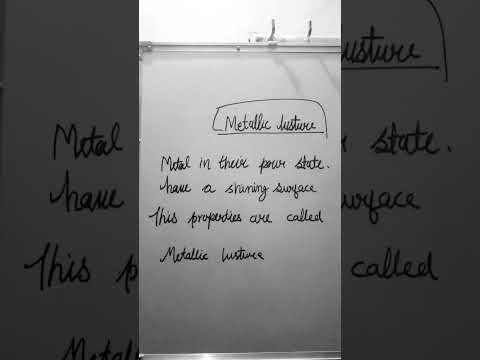 Metallic lusture
Metal in their pour state.
have a shining surface
This properties are called
Metallic lusture